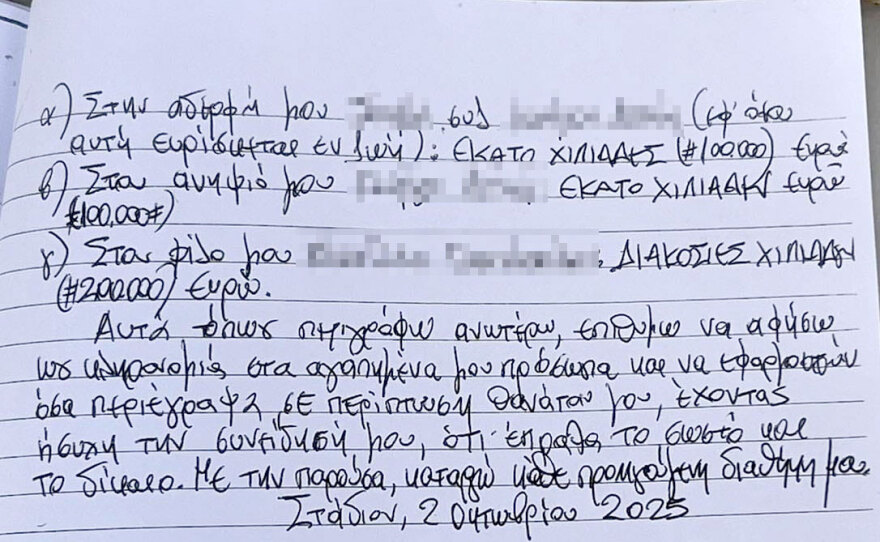 α) Στην αδερφή μου συζ (εφ' όσον
αυτή ευρίσκεται εν ζωή): ΕΚΑΤΟ ΧΙΛΙΑΔΕΣ (#100.000) Ευρώ
β) Στον ανηψιό μου ΕΚΑΤΟ ΧΙΛΙΑΔΕΣ Ευρώ
(#100,000#)
γ) Στον φίλο μου : ΔΙΑΚΟΣΙΕΣ ΧΙΛΙΑΔΕΣ
(#200.000) Ευρώ.
Αυτά όπως περιγράφω ανωτέρω, επιθυμώ να αφήσω
ως κληρονομιά στα αγαπημένα μου πρόσωπα και να εφαρμοστούν
όσα περιέγραψα, σε περίπτωση θανάτου μου, έχοντας
ήσυχη την συνείδησή μου, ότι έπραξα το σωστό και
το δίκαιο. Με την παρούσα, καταργώ κάθε προηγούμενη διαθήκη μου.
Στάδιον, 2 Οκτωβρίου 2025